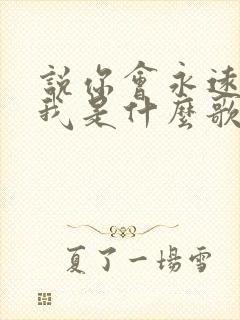 說你會永遠
我是什麼歌
夏了一場雪